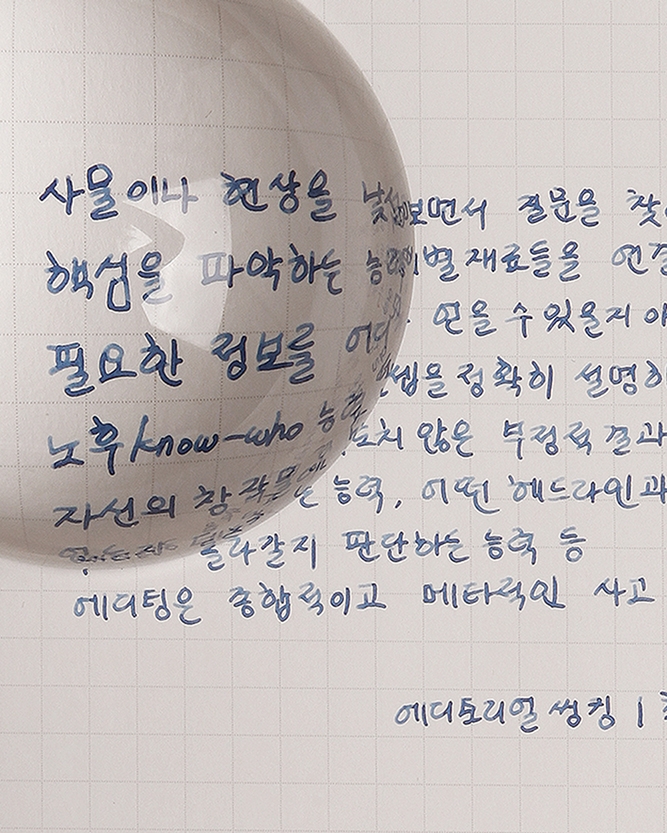 사물이나 현상을 낯설게보면서 질문을 찾
핵심을 파악하는 능력 개별 재료들을 연결
필요한 정보를 어디 얻을 수 있을지 아
노후know-who 능력 컨셉을 정확히 설명하
치 않은 부정적 결과
자신의 창작물 능력, 어떤 헤드라인과
올라갈지 판단하는 능력 등
에디팅은 종합적이고 메타적인 사고
에디토리얼 씽킹 |